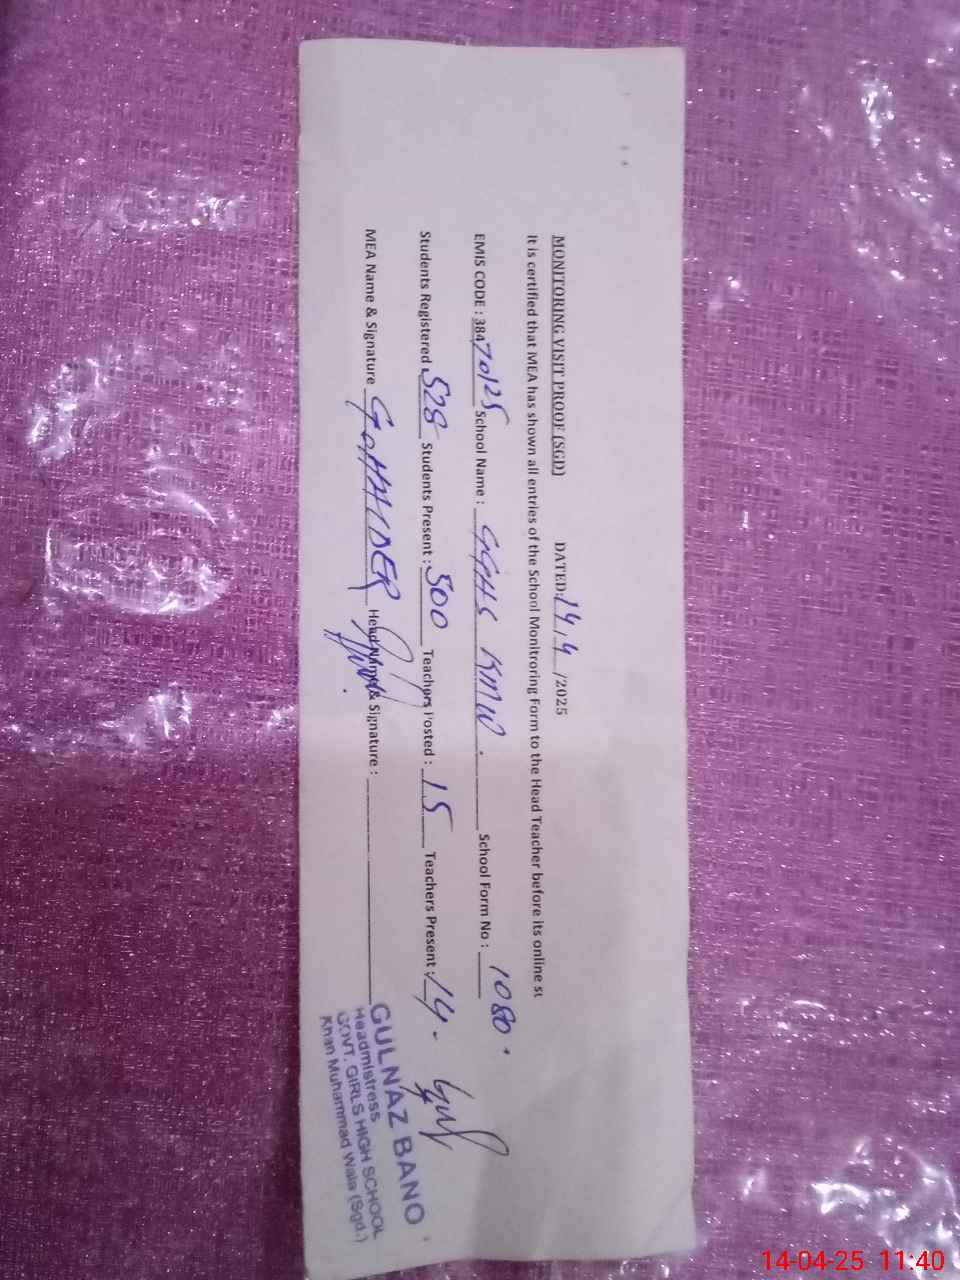 MONITORING VISIT PROOF (SGD) DATED: 14/4/2025
It is certified that MEA has shown all entries of the School Monitroring Form to the Head Teacher before its online
EMIS CODE : 38470125 School Name : GGHS KMW. School Form No : 1080.
Students Registered 528 Students Present : 500 Teachers Posted : 15 Teachers Present : 14.
MEA Name & Signature Head Name & Signature :
GULNAZ BANO
Headmistress
GOVT. GIRLS HIGH SCHOOL
Khan Muhammad Wala (Sgd.)
14-04-25 11:40